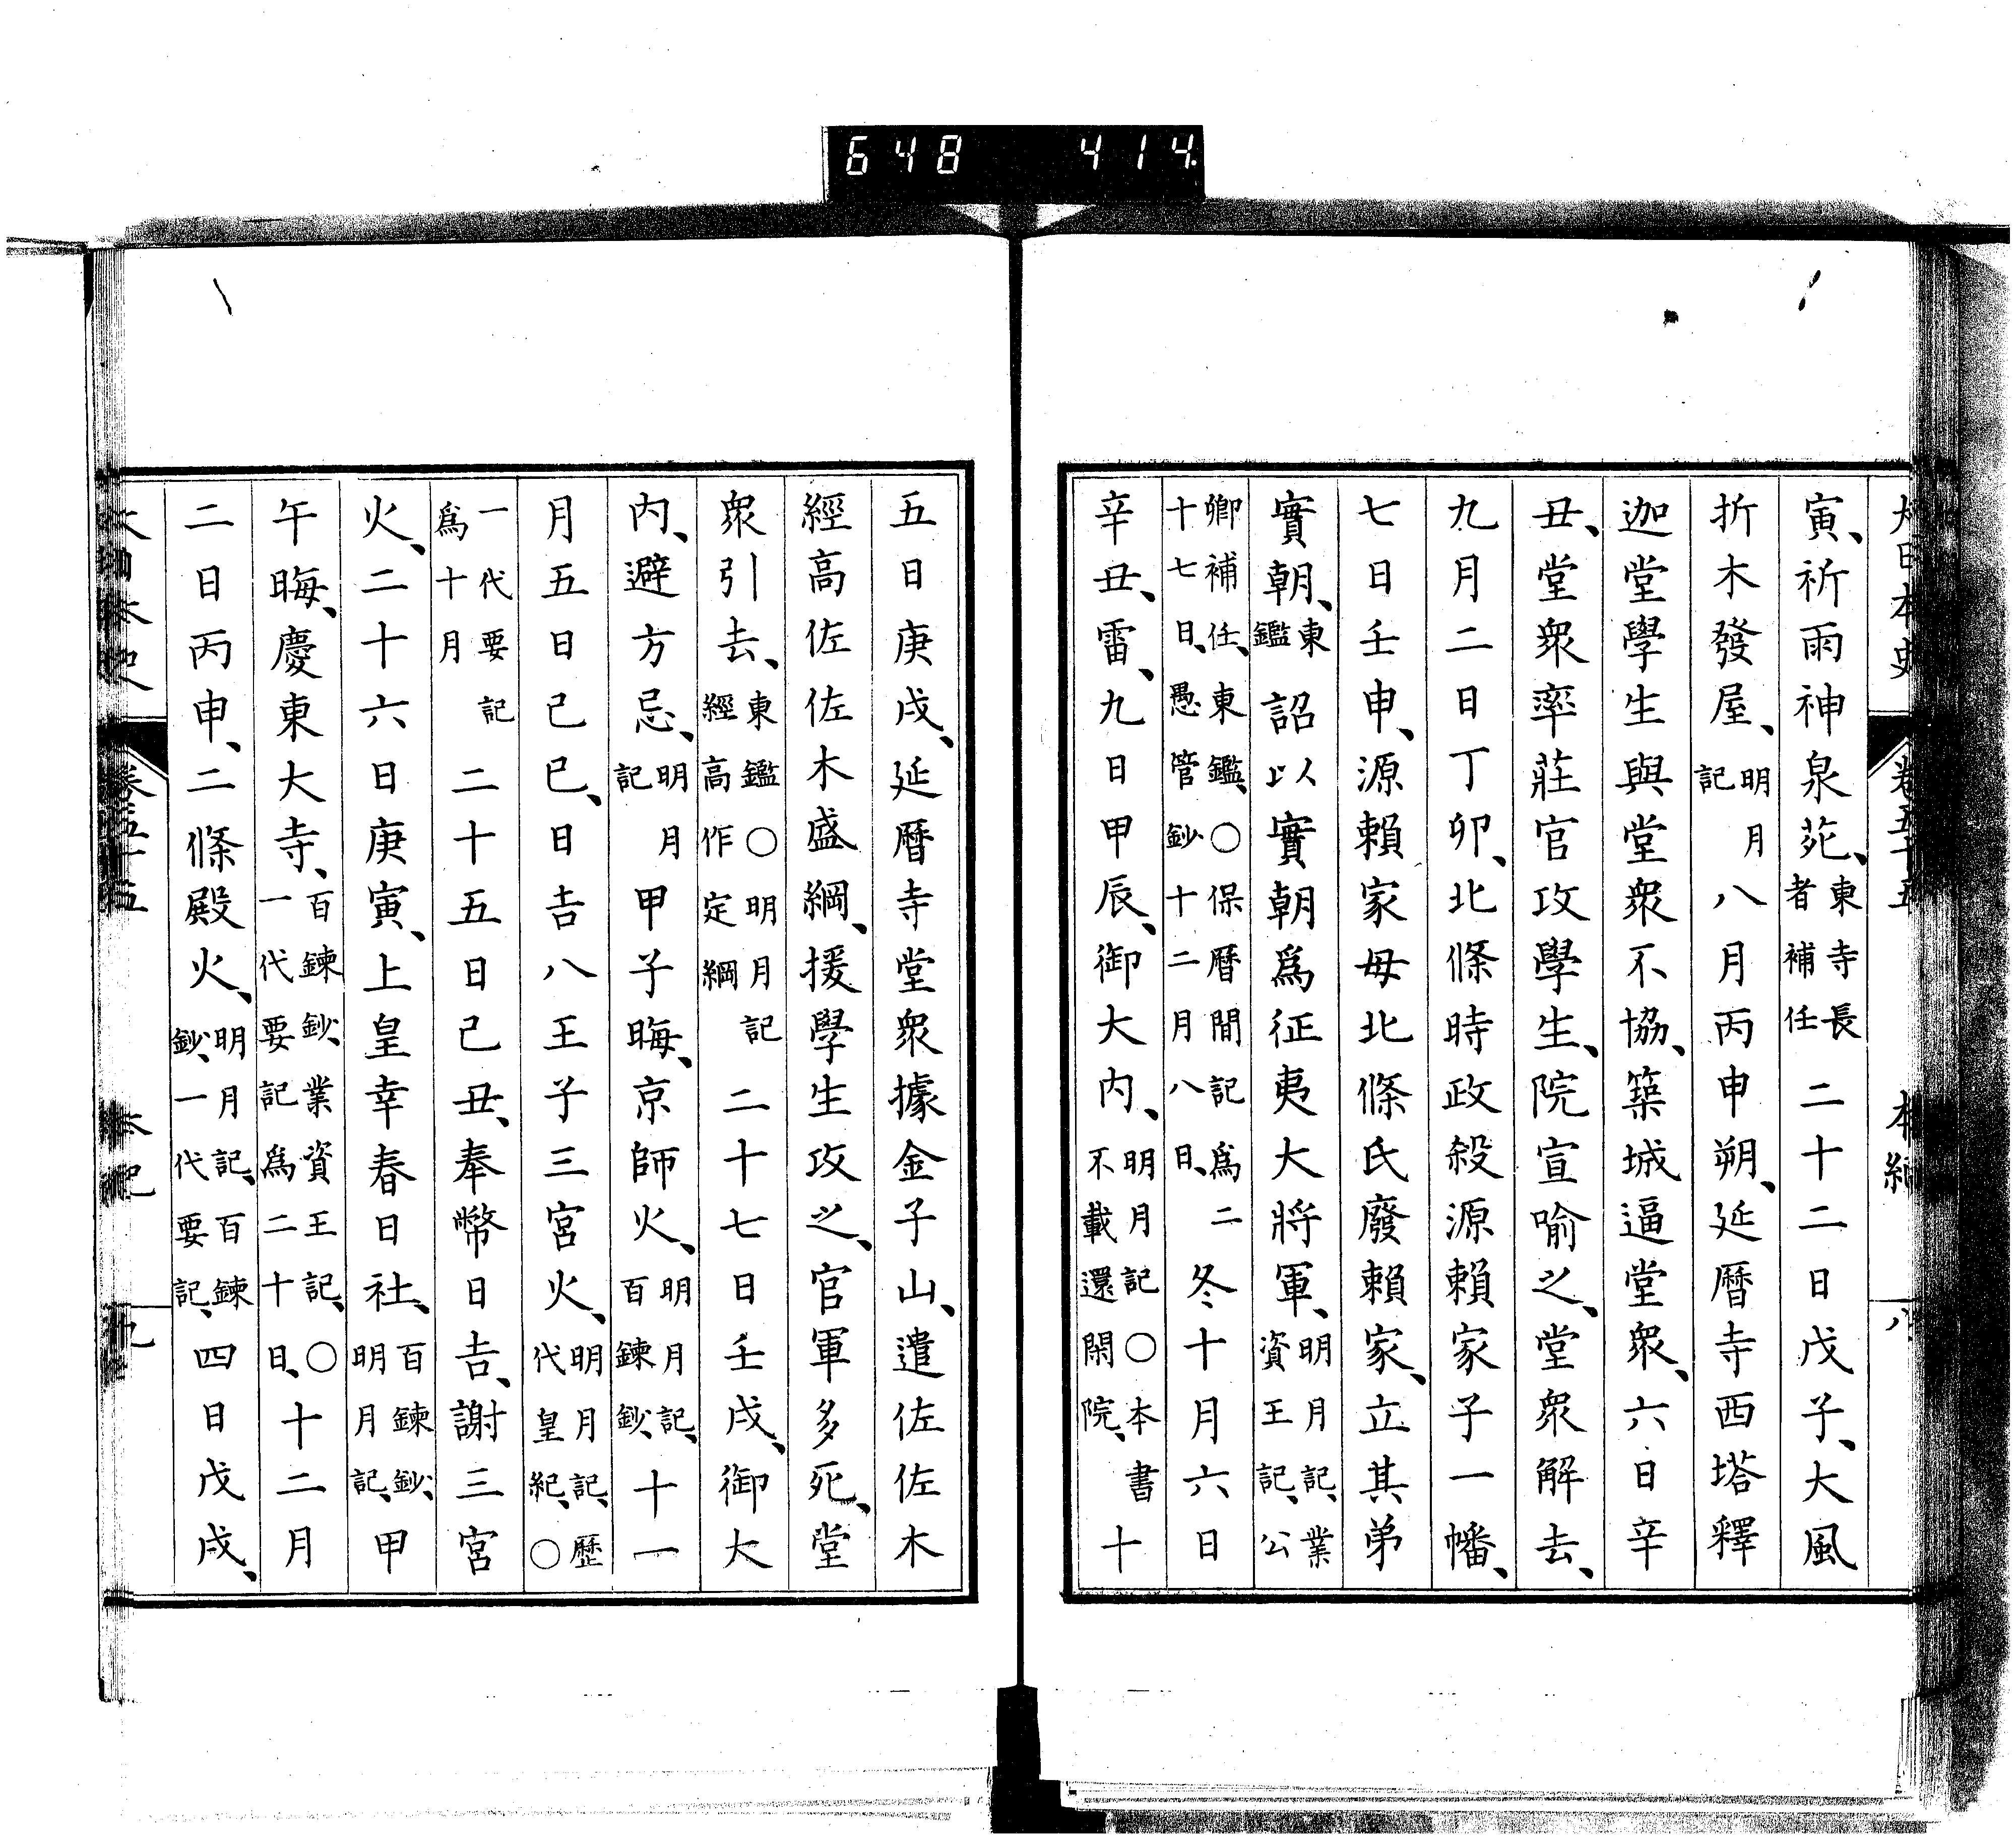 648 414
大日本史 卷五十五 本紀 八
寅、祈雨神泉苑、東寺長者補任二十二日戊子、大風
折木發屋、明月記八月丙申朔、延暦寺西塔釋
迦堂學生與堂衆不協、築城逼堂衆、六日辛
丑、堂衆率莊官攻學生、院宣喻之、堂衆解去、
九月二日丁卯、北條時政殺源賴家子一幡、
七日壬申、源賴家母北條氏廢賴家、立其弟
實朝、東鑑詔以實朝爲征夷大將軍、明月記、業資王記、公
卿補任、東鑑、〇保暦間記爲二十七日、愚管鈔十二月八日、冬十月六日
辛丑、雷、九日甲辰、御大内、明月記〇本書不載還閑院、十
五日庚戌、延暦寺堂衆據金子山、遣佐佐木
經高佐佐木盛綱、援學生攻之、官軍多死、堂
衆引去、東鑑〇明月記經高作定綱二十七日壬戌、御大
内、避方忌、明月記甲子晦、京師火、明月記、百鍊鈔、十一
月五日己巳、日吉八王子三宮火、明月記、歷代皇紀、〇
一代要記爲十月二十五日己丑、奉幣日吉、謝三宮
火、二十六日庚寅、上皇幸春日社、百鍊鈔、明月記、甲
午晦、慶東大寺、百鍊鈔、業資王記、〇一代要記爲二十日、十二月
二日丙申、二條殿火、明月記、百鍊鈔、一代要記、四日戊戌、
大日本史 卷五十五 本紀 九